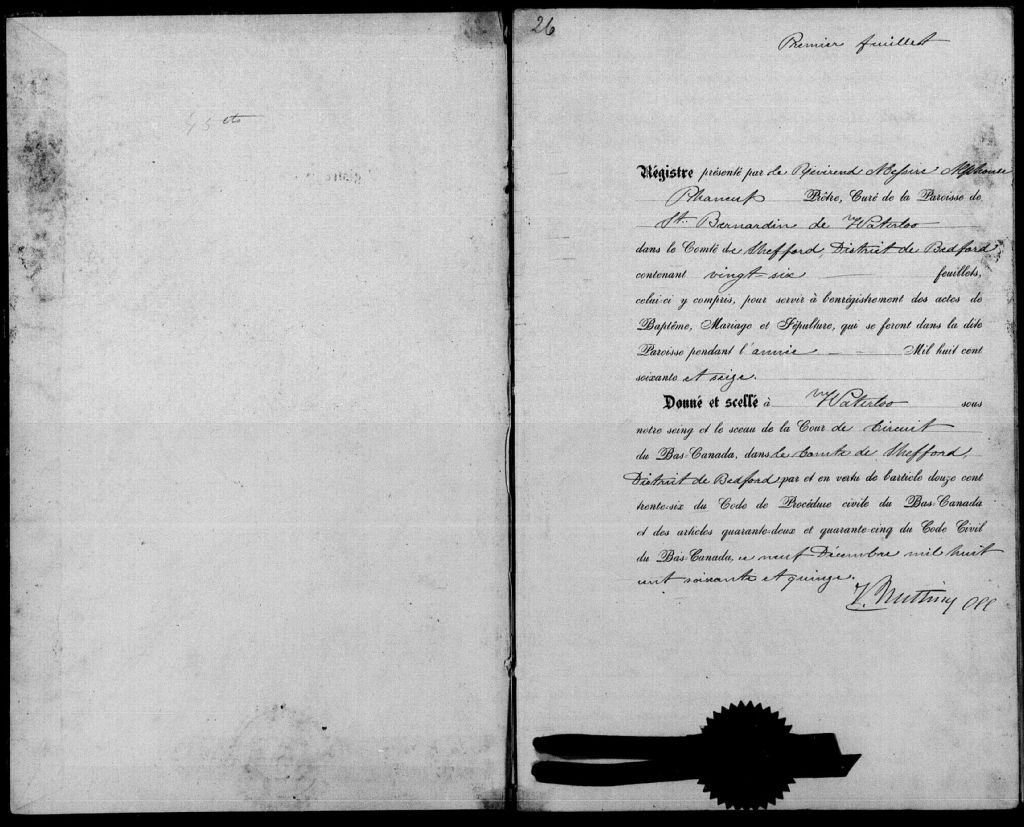 45 cts
26
Premier feuillet
Régistre présenté par le Révérend Messire Alphonse
Phaneuf Prêtre, Curé de la Paroisse de
St. Bernardin de Waterloo
dans le Comté de Shefford, District de Bedford
contenant vingt-six feuillets,
celui-ci y compris, pour servir à l'enrégistrement des actes de
Baptême, Mariage et Sépulture, qui se feront dans la dite
Paroisse pendant l'année Mil huit cent
soixante et seize.
Donné et scellé à Waterloo sous
notre seing et le sceau de la Cour de Circuit
du Bas-Canada, dans le Comté de Shefford,
District de Bedford, par et en vertu de l'article douze cent
trente-six du Code de Procédure civile du Bas-Canada
et des articles quarante-deux et quarante-cinq du Code Civil
du Bas-Canada, ce neuf Décembre mil huit
cent soixante et quinze.